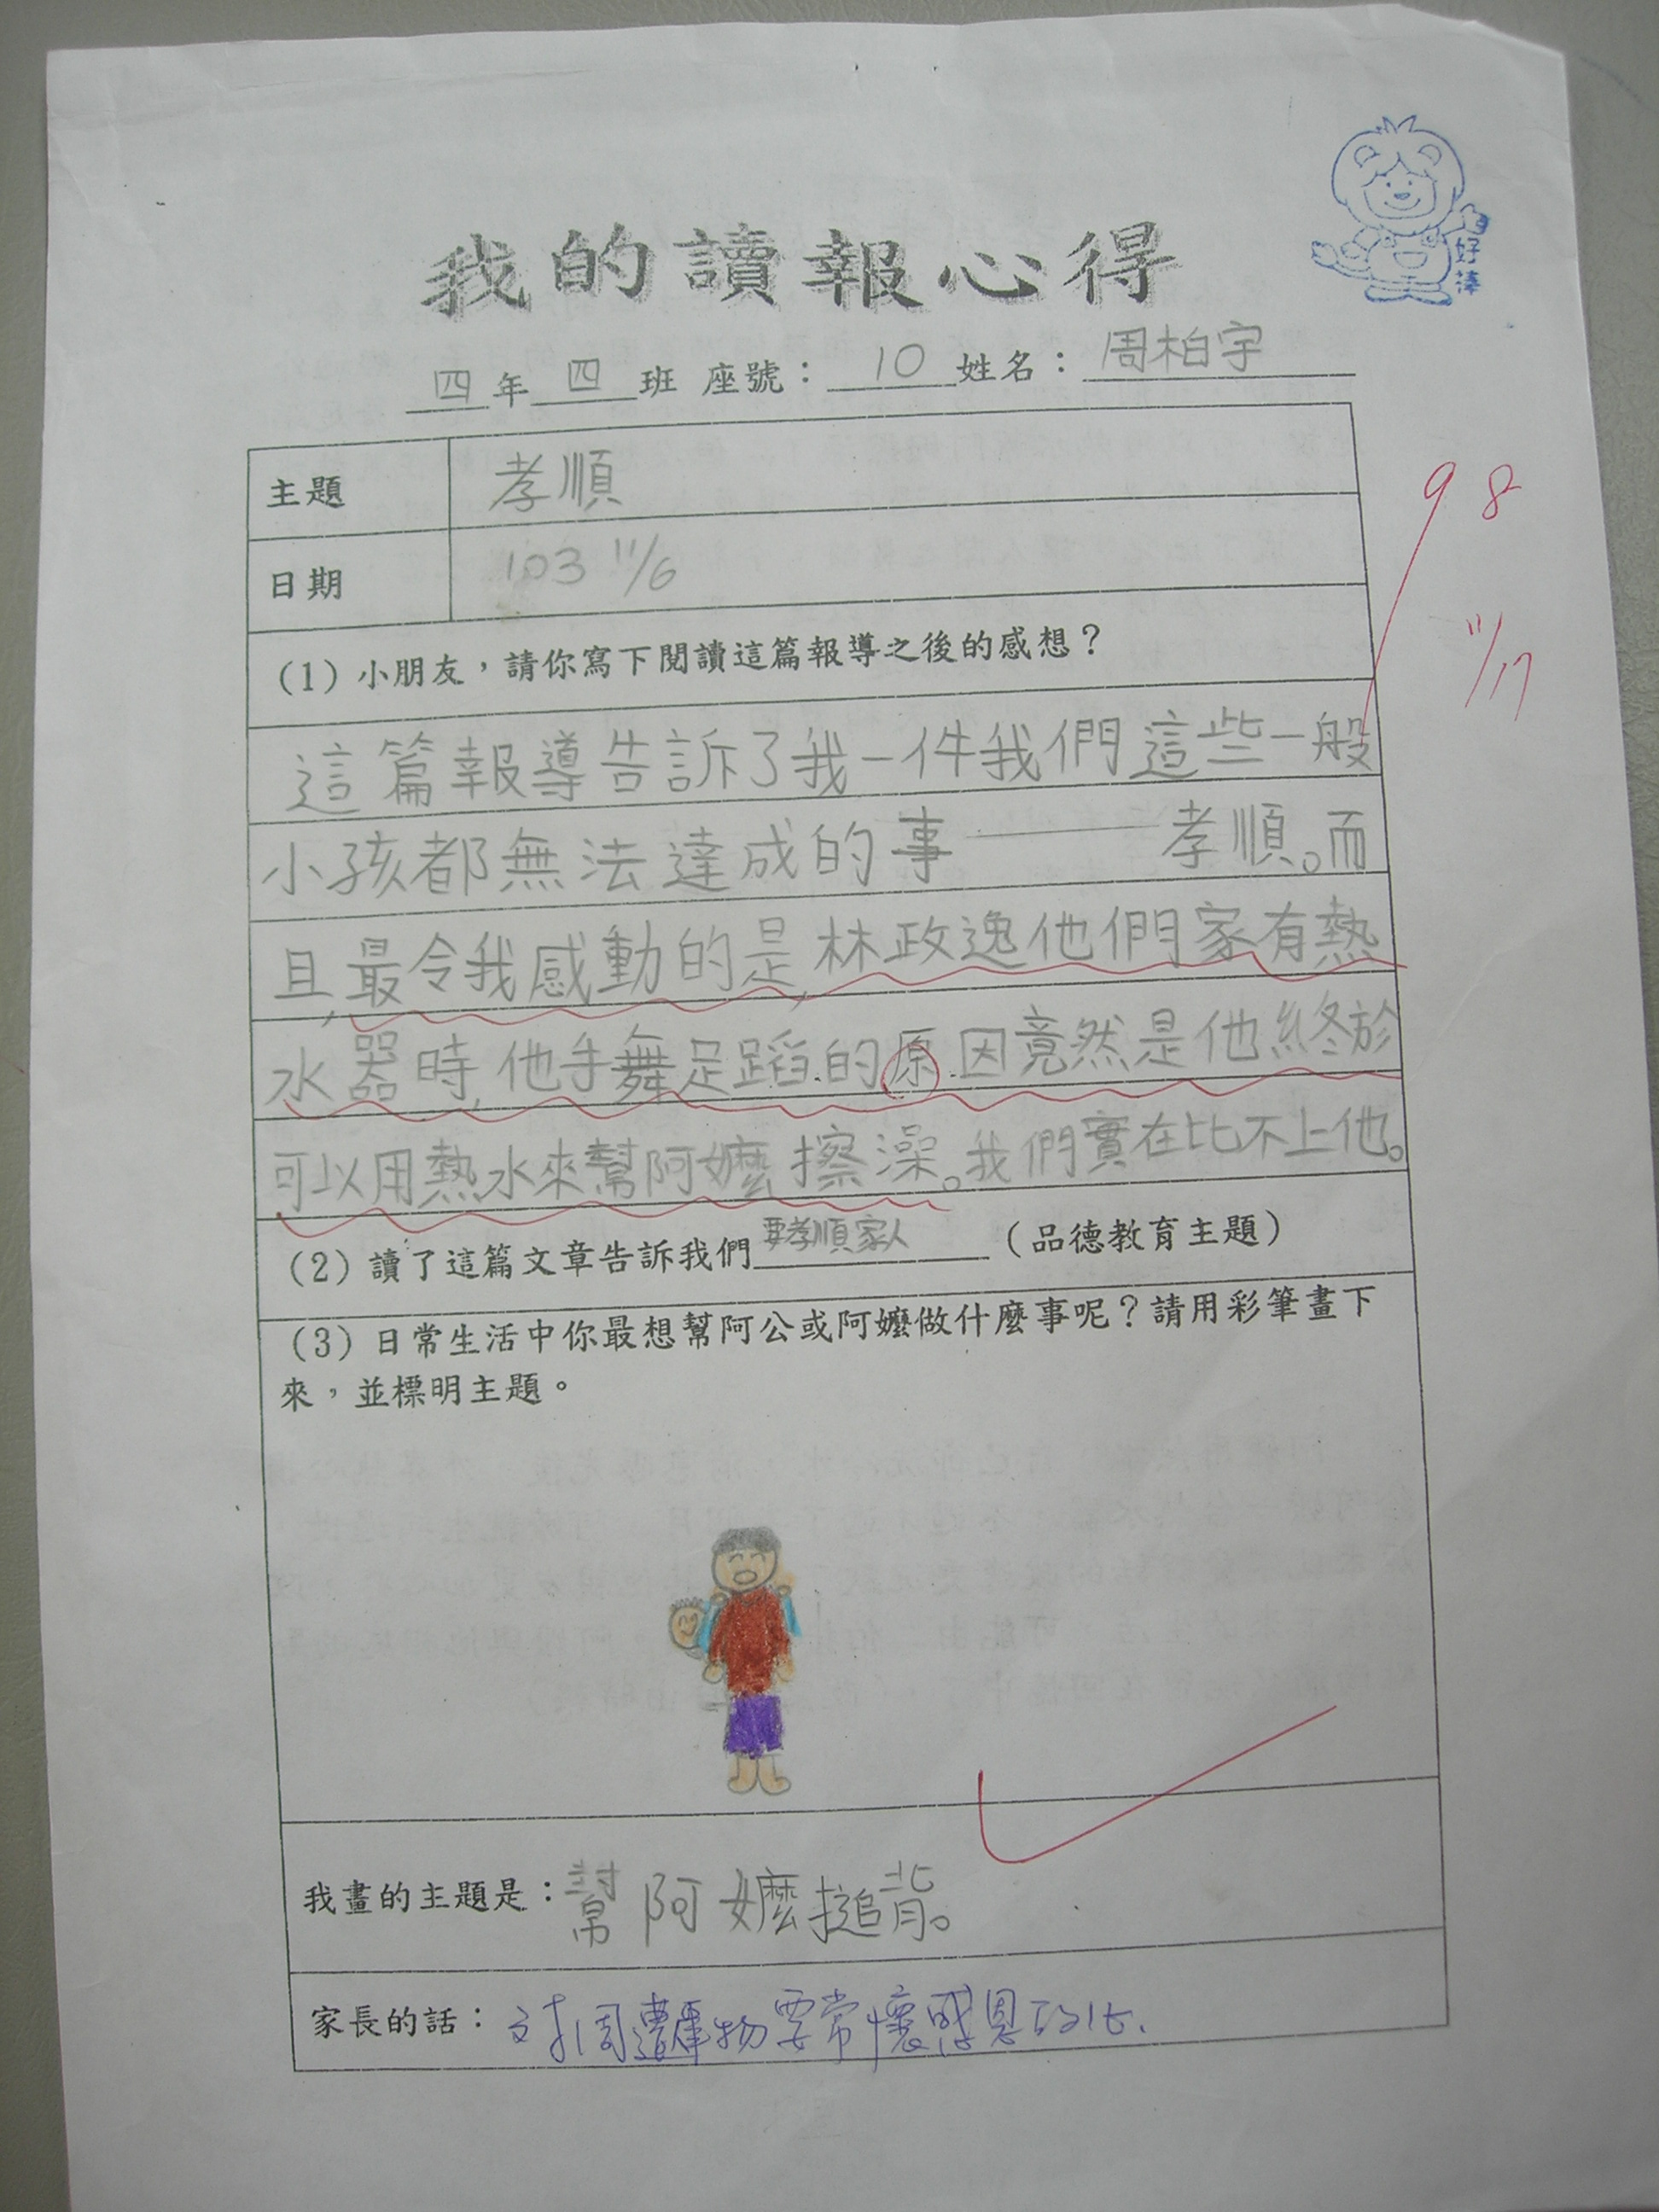 好棒
我的讀報心得
四年四班 座號：10 姓名：周柏宇
主題 孝順
日期 103 11/6
98
11/17
(1)小朋友，請你寫下閱讀這篇報導之後的感想？
這篇報導告訴了我一件我們這些一般
小孩都無法達成的事——孝順。而
且,最令我感動的是,林政逸他們家有熱
水器時,他手舞足蹈的原因竟然是他終於
可以用熱水來幫阿嬤擦澡。我們實在比不上他。
(2)讀了這篇文章告訴我們要孝順家人(品德教育主題)
(3)日常生活中你最想幫阿公或阿嬤做什麼事呢？請用彩筆畫下
來，並標明主題。
我畫的主題是：幫阿嬤搥背。
家長的話：對周遭事物要常懷感恩的心.